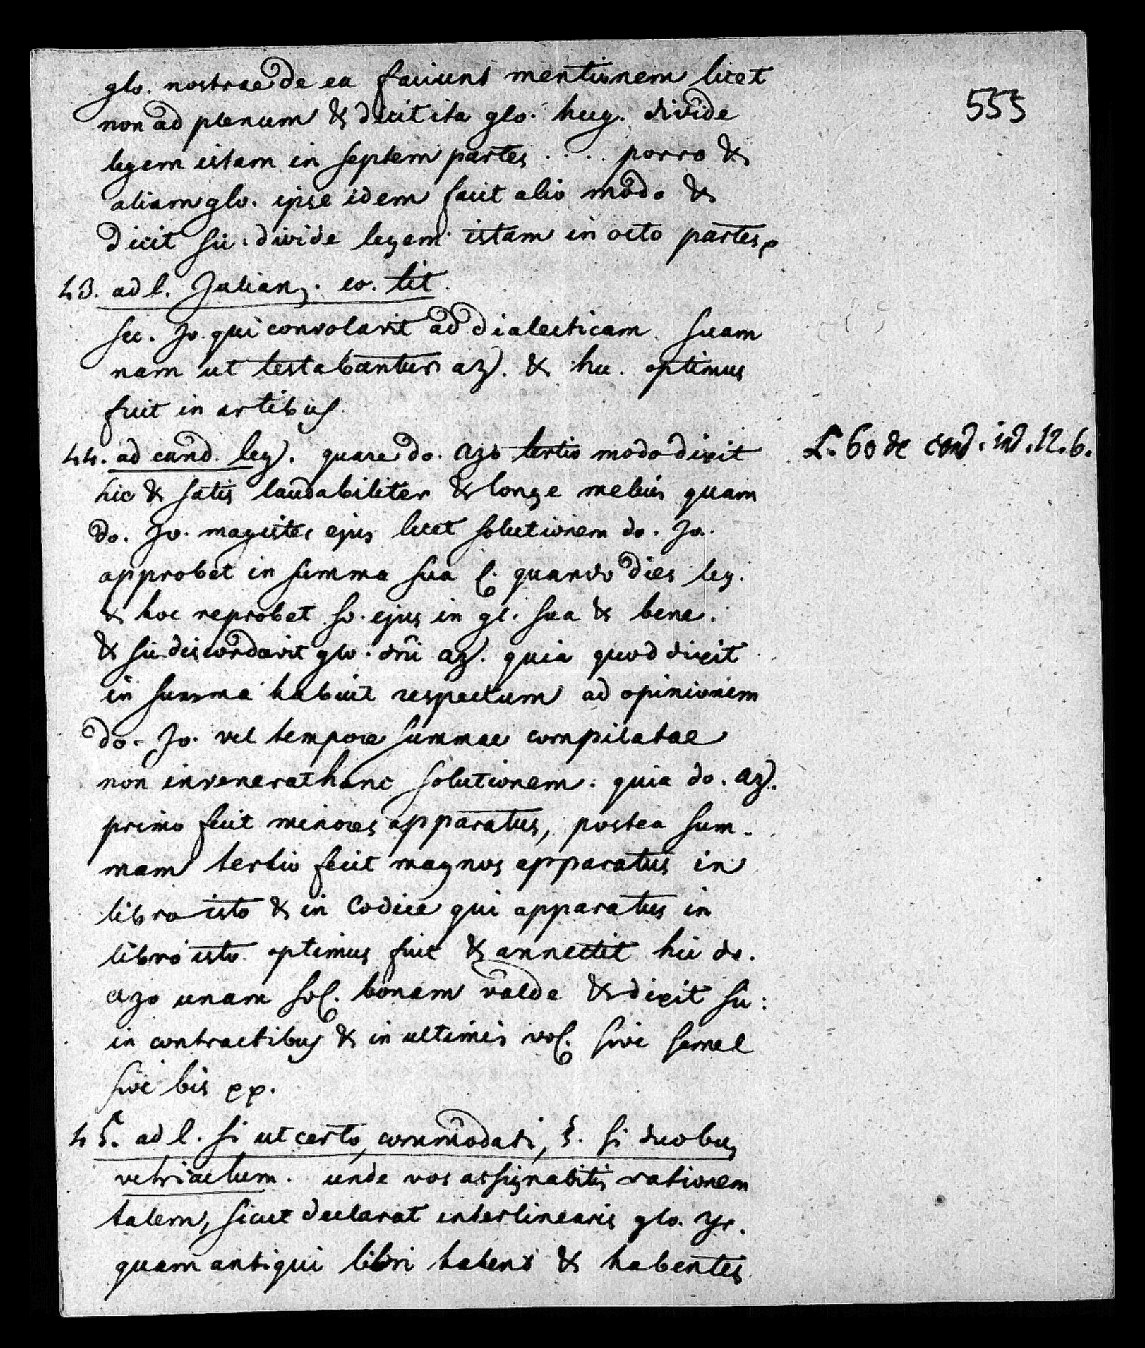 555
glo. nostrae de ea faciunt mentionem licet
non ad plenum & dicit ita glo. hug. divide
legem istam in septem partes .... porro &
aliam glo. ipse idem facit alio modo &
dicit sic: divide legem istam in octo partes.
43. ad l. Julian9. eo. tit.
sec. Jo. qui convolavit ad dialecticam suam
nam ut testabantur az. & hu. optimus
fuit in artibus.
44. ad eand. leg. quare do. azo tertio modo dixit
L. 60 de cond. ind. 12. 6.
hic & satis laudabiliter & longe melius quam
do. Jo. magister ejus licet solutionem do. Jo.
approbet in summa sua C. quando dies leg.
& hoc reprobat so. ejus in gl. sua & bene.
& sic discordavit glo. dni az. quia quod dixit
in summa habuit respectum ad opinionem
do. Jo. vel tempore summae compilatae
non invenerat hanc solutionem. quia do. az.
primo fecit minores apparatus, postea sum-
mam tertio fecit magnos apparatus in
libro isto & in Codice qui apparatus in
libro isto optimus fuit & annectit hic do.
azo unam sol. bonam valde & dixit sic:
in contractibus & in ultimis vol. sive semel
sive bis pp.
45. ad l. si ut certo, commodati, §. si duobus
vehiculum. unde vos assignabitis rationem
talem, sicut declarat interlinearis glo. yr.
quam antiqui libri habent & habentes